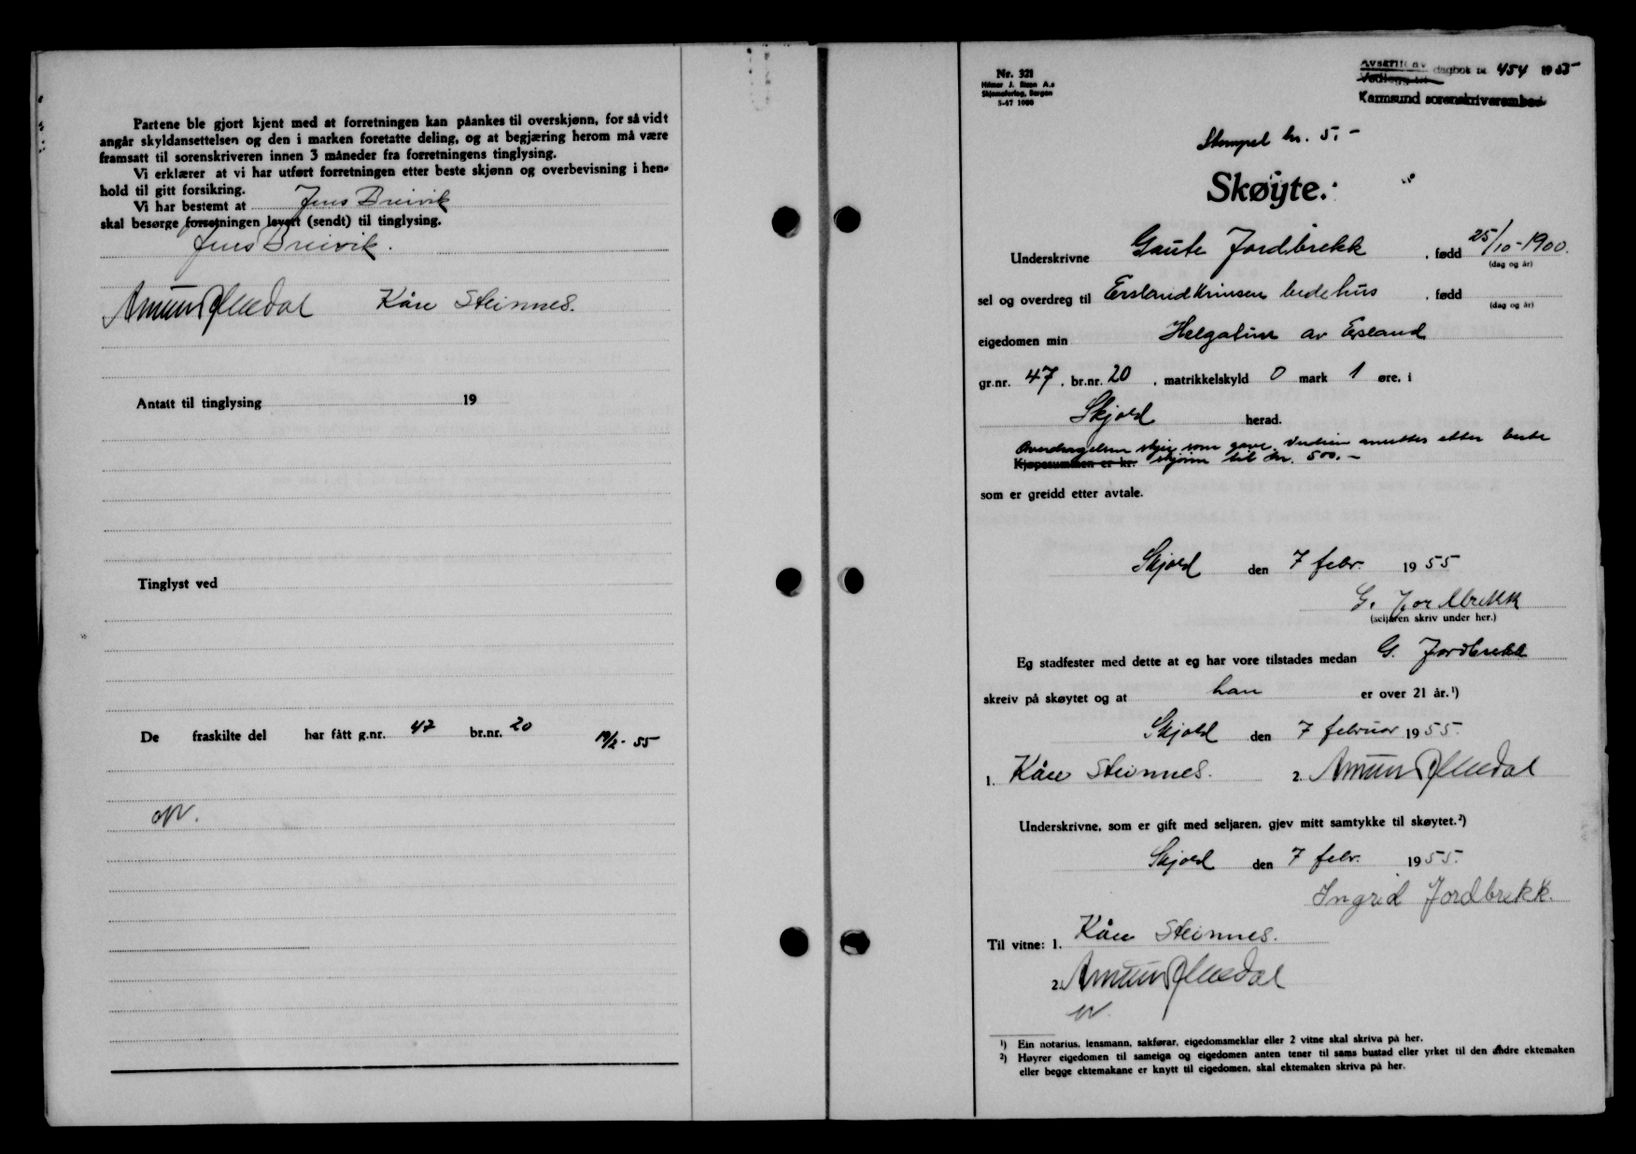 Partene ble gjort kjent med at forretningen kan påankes til overskjønn, for så vidt
angår skyldansettelsen og den i marken foretatte deling, og at begjæring herom må være
framsatt til sorenskriveren innen 3 måneder fra forretningens tinglysing.
Vi erklærer at vi har utført forretningen etter beste skjønn og overbevisning i hen-
hold til gitt forsikring.
Vi har bestemt at Jens Breivik
skal besørge forretningen levert (sendt) til tinglysing.
Jens Breivik.
Amund Ølmedal Kåre Steinnes.
Antatt til tinglysing 19
Tinglyst ved
De fraskilte del har fått g.nr. 47 br.nr. 20 19/2-55
Nr. 321
5-47 1000
Avskrift av dagbok nr. 454 1955
Karmsund sorenskriverembed
Stempel kr. 5.-
Skøyte.
Underskrivne Gaute Jordbrekk , fødd 25/10-1900.
(dag og år)
sel og overdreg til Erslandkrinsen bedehus , fødd
(dag og år)
eigedomen min Helgatun av Ersland
gr.nr. 47, br.nr. 20 , matrikkelskyld 0 mark 1 øre, i
Skjold herad.
Overdragelsen skjer som gave. Verdien ansettes etter beste
Kjøpesummen er kr. skjønn til kr. 500.-
som er greidd etter avtale.
Skjold den 7 febr. 1955
G. Jordbrekk
(seljaren skriv under her.)
Eg stadfester med dette at eg har vore tilstades medan G. Jordbrekk
skreiv på skøytet og at han er over 21 år.¹)
Skjold den 7 februar 1955.
1. Kåre Steinnes. 2. Amund Ølmedal
Underskrivne, som er gift med seljaren, gjev mitt samtykke til skøytet.²)
Skjold den 7 febr. 1955.
Ingrid Jordbrekk.
Til vitne: 1. Kåre Steinnes.
2. Amund Ølmedal
¹) Ein notarius, lensmann, sakførar, eigedomsmeklar eller 2 vitne skal skriva på her.
²) Høyrer eigedomen til sameiga og eigedomen anten tener til sams bustad eller yrket til den andre ektemaken
eller begge ektemakane er knytt til eigedomen, skal ektemaken skriva på her.